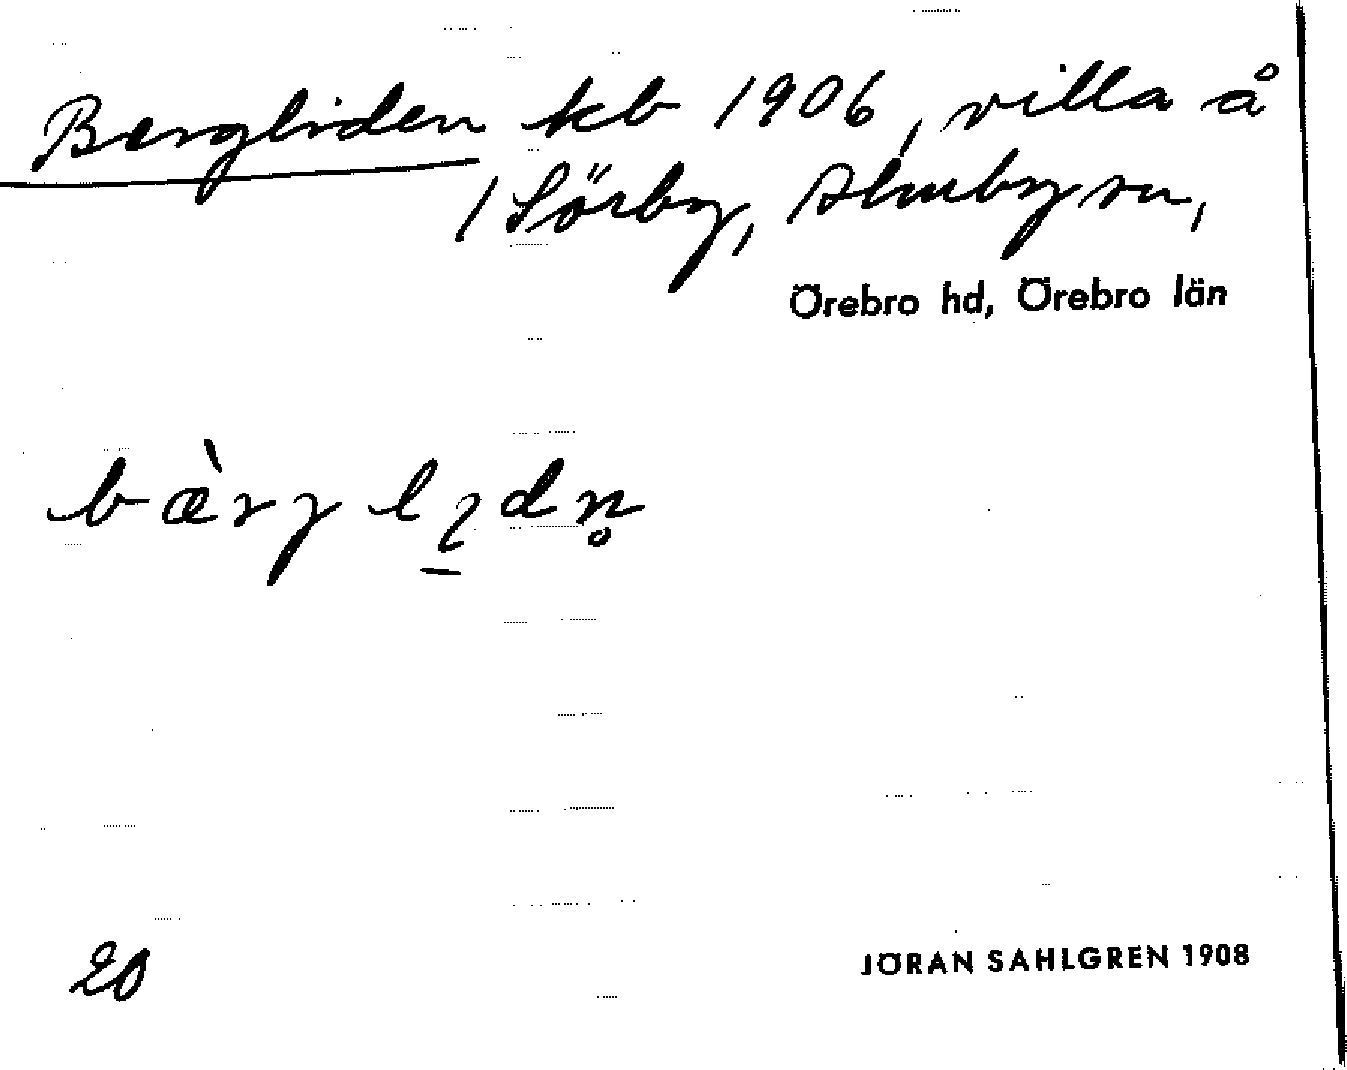 Bergliden kb 1906, villa å
1 Sörby, Almby sn,
Örebro hd, Örebro län
bæ̀rj lı̱dn̥
20
JÖRAN SAHLGREN 1908